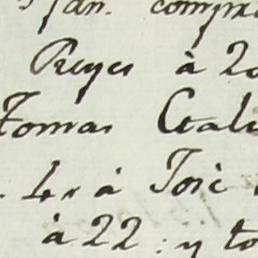 Jan. compr
Reyes à 20
Tomas Ctalu
à José
à 22: y to